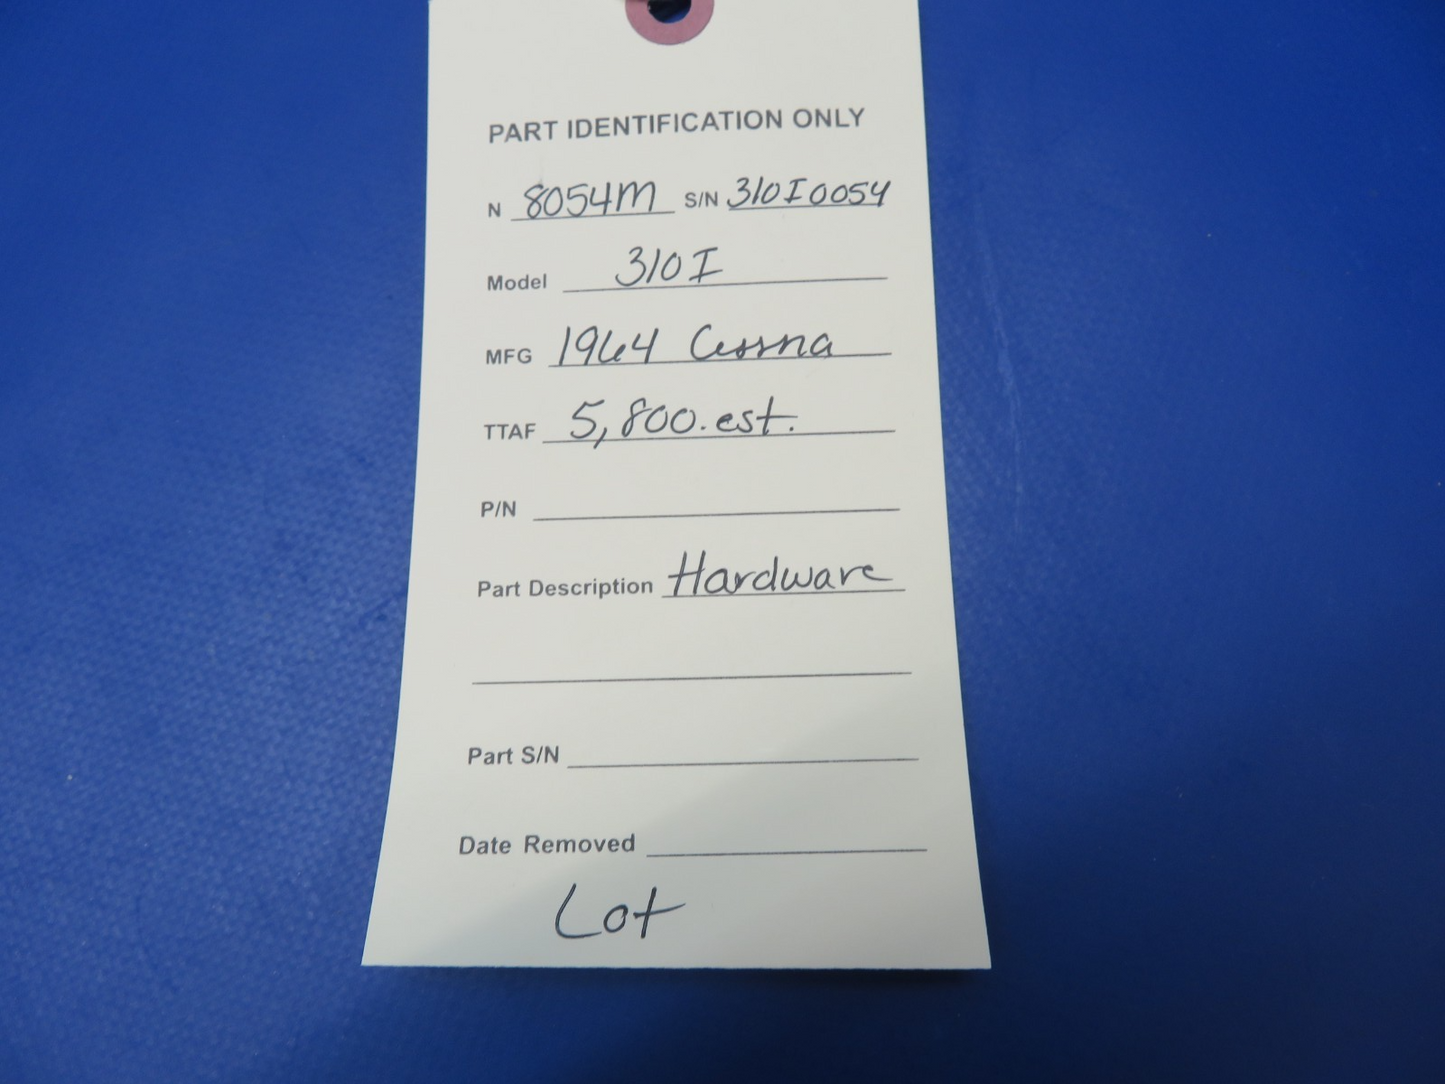 PART IDENTIFICATION ONLY
N 8054M S/N 310I0054
Model 310I
MFG 1964 Cessna
TTAF 5,800.est.
P/N
Part Description Hardware
Part S/N
Date Removed
Lot